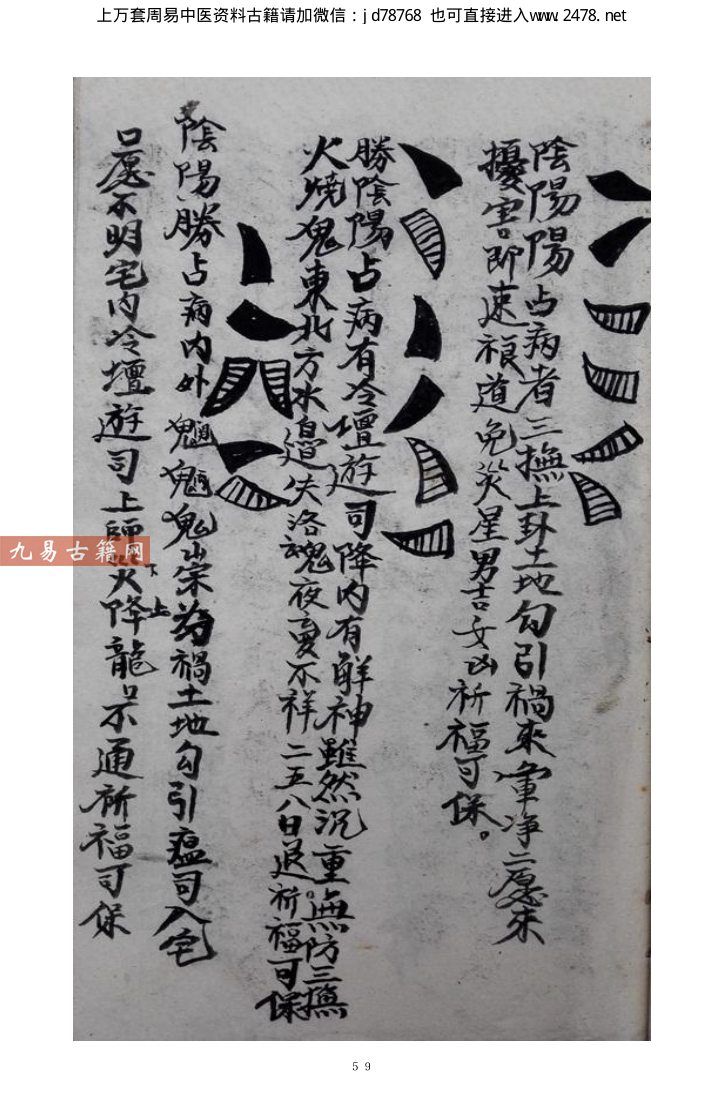 上万套周易中医资料古籍请加微信：jd78768 也可直接进入www.2478.net
陰陽陽占病者三撫上卦土地勾引禍來 净二愿未
擾害即速 道免災星男吉女凶祈福可保。
勝陰陽占病有冷壇遊司降内有解神雖然沉重無防三撫
火燒鬼東北方水 邉失洛魂夜夢不祥二五八日退祈福可保
陰陽勝占病内外 鬼 為禍土地勾引瘟司入宅
口愿不明宅内冷壇遊司上師 下降上龍 不通祈福可保
九易古籍网
59